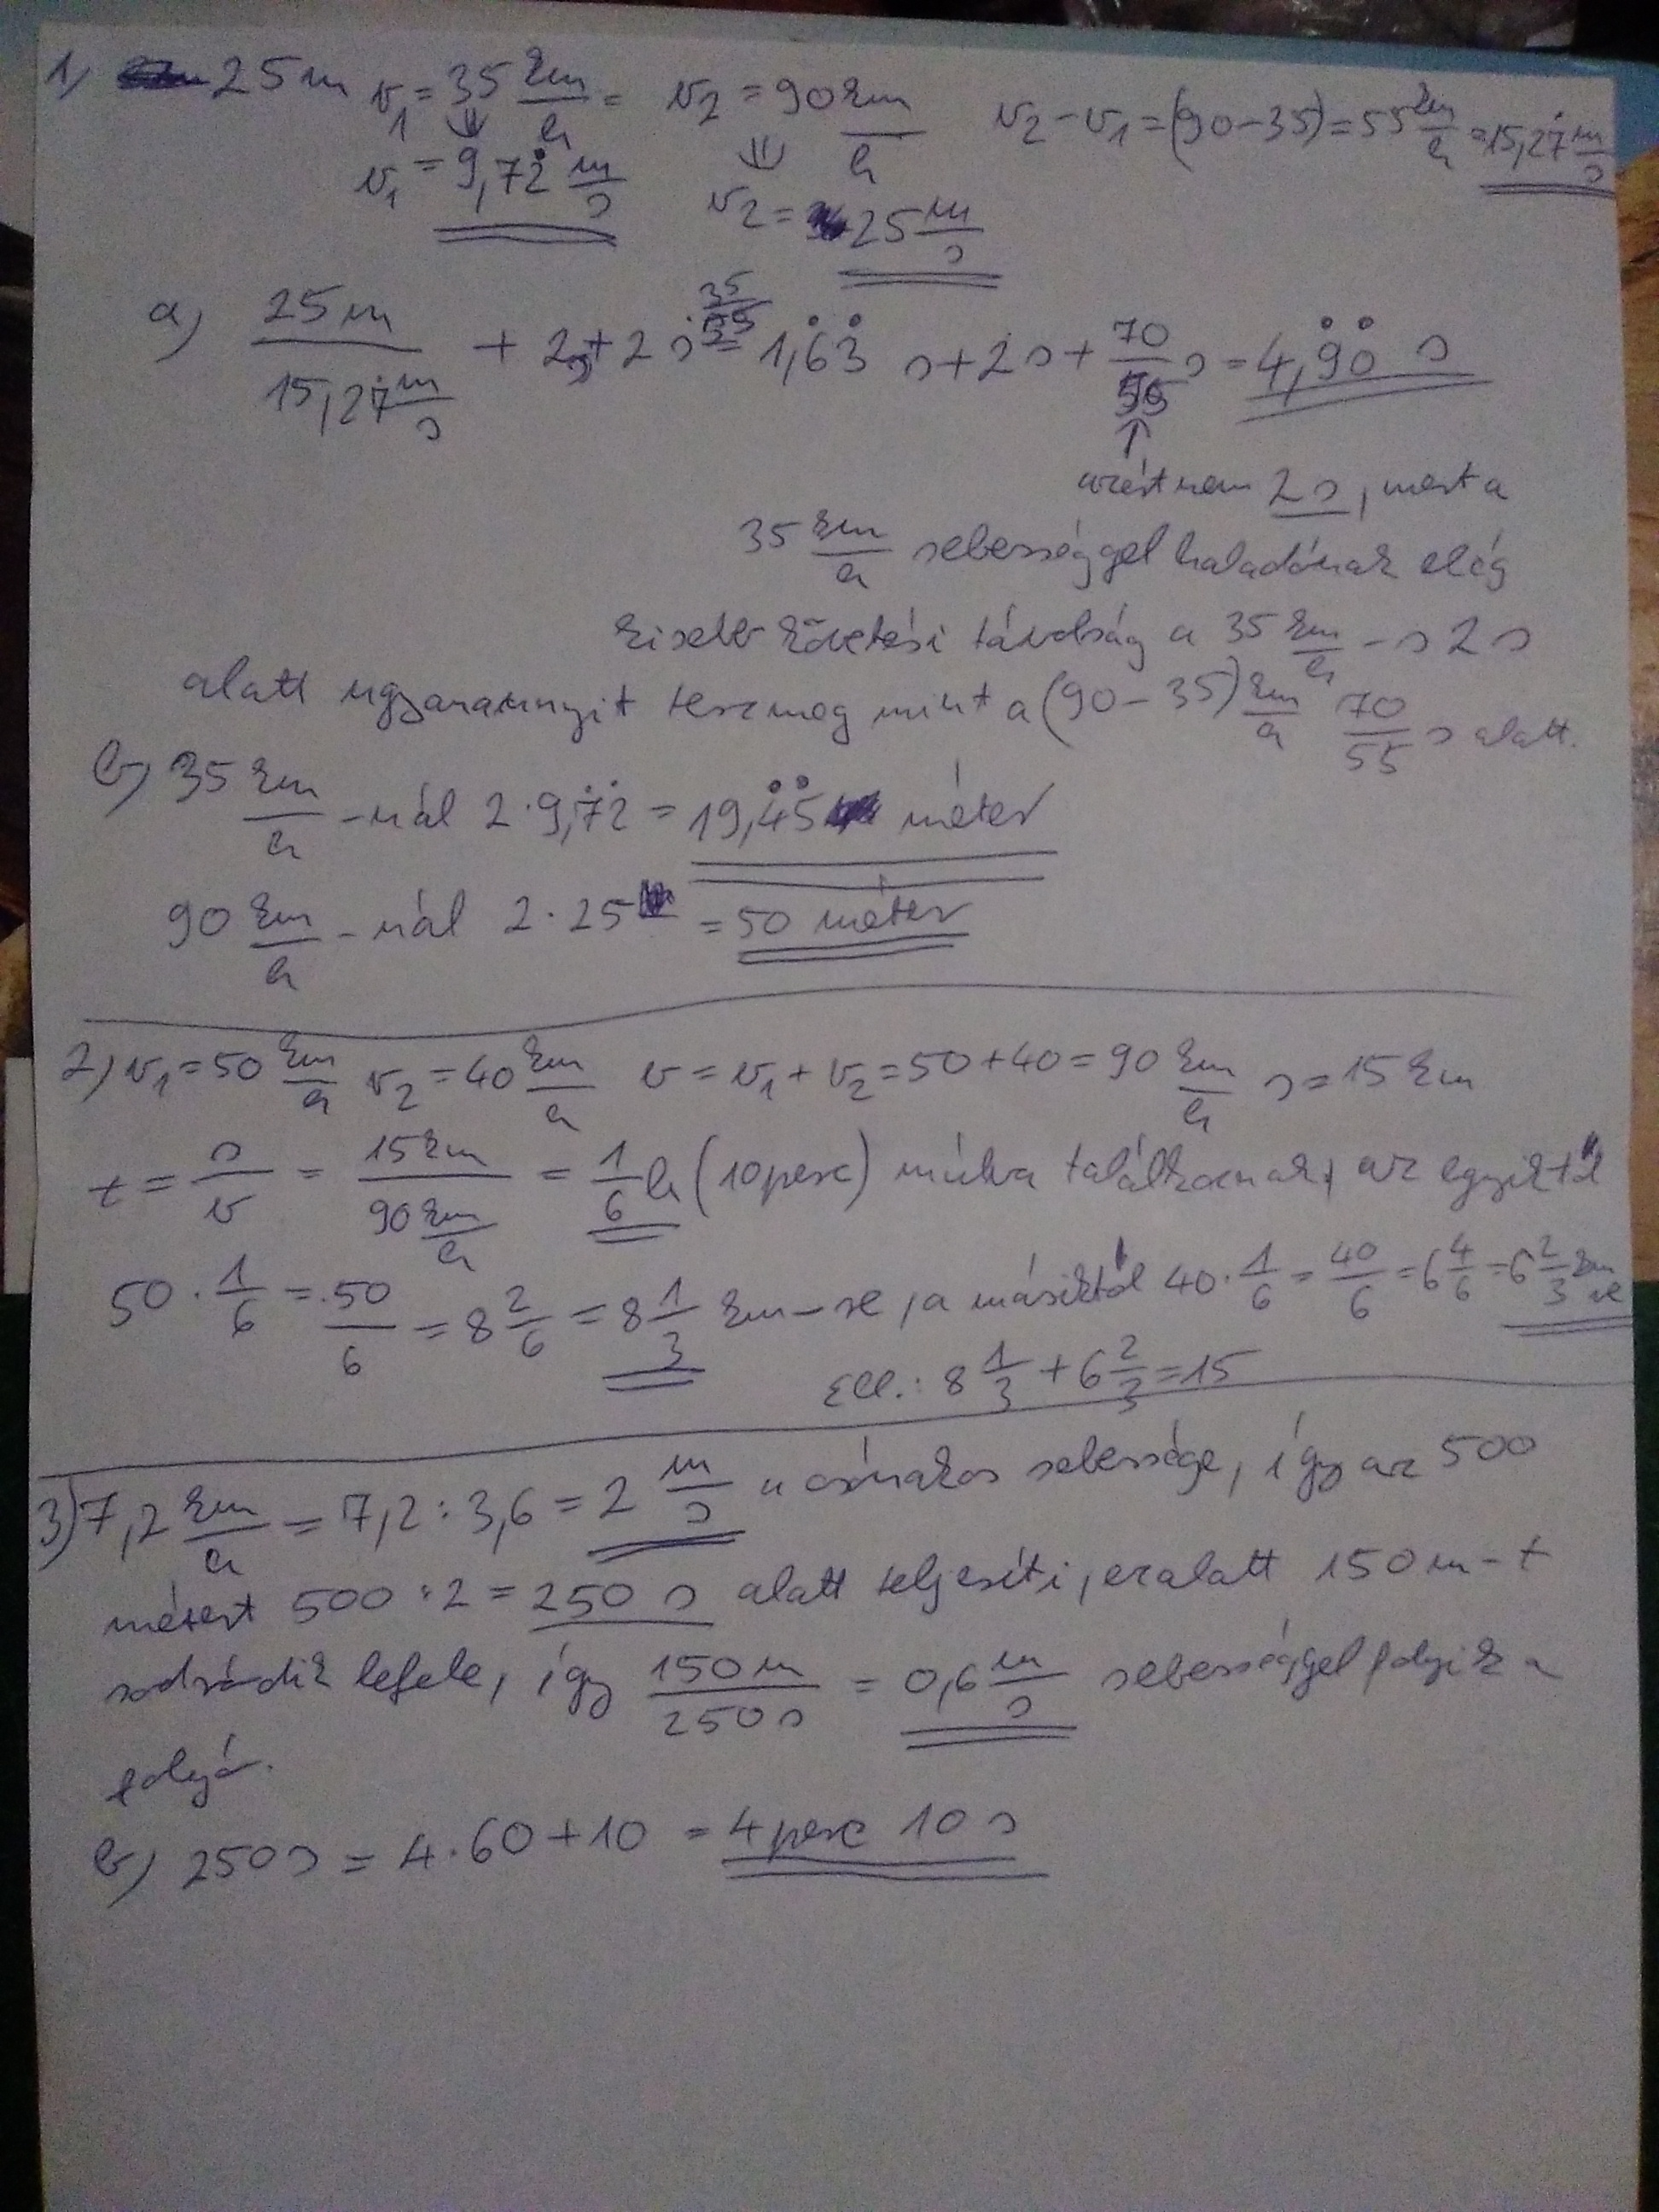 1) 25m v₁ = 35 km/h = v₂ = 90 km/h v₂ - v₁ = (90-35) = 55 km/h = 15,27̇ m/s
⇓ ⇓
v₁ = 9,72̇ m/s v₂ = 25 m/s
a) 25m / 15,27̇ m/s + 2s + 2s · 35/55 = 1,6̇3̇ s + 2s + 70/55 s = 4,9̇0̇ s
↑
azért nem 2s, mert a
35 km/h sebességgel haladónak elég
kisebb követési távolság a 35 km/h -s 2s
alatt ugyanannyit tesz meg mint a (90-35) km/h 70/55 s alatt.
b) 35 km/h -nál 2·9,72̇ = 19,4̇5̇ méter
90 km/h -nál 2·25 = 50 méter
2) v₁ = 50 km/h v₂ = 40 km/h v = v₁ + v₂ = 50+40 = 90 km/h s = 15 km
t = s/v = 15km / 90 km/h = 1/6 h (10 perc) múlva találkoznak, az egyiktől
50 · 1/6 = 50/6 = 8 2/6 = 8 1/3 km-re, a másiktól 40 · 1/6 = 40/6 = 6 4/6 = 6 2/3 km re
Ell.: 8 1/3 + 6 2/3 = 15
3) 7,2 km/h = 7,2 : 3,6 = 2 m/s a csónakos sebessége, így az 500
métert 500 : 2 = 250 s alatt teljesíti, ezalatt 150 m-t
sodródik lefele, így 150m / 250s = 0,6 m/s sebességgel folyik a
folyó.
b) 250s = 4·60+10 = 4 perc 10 s